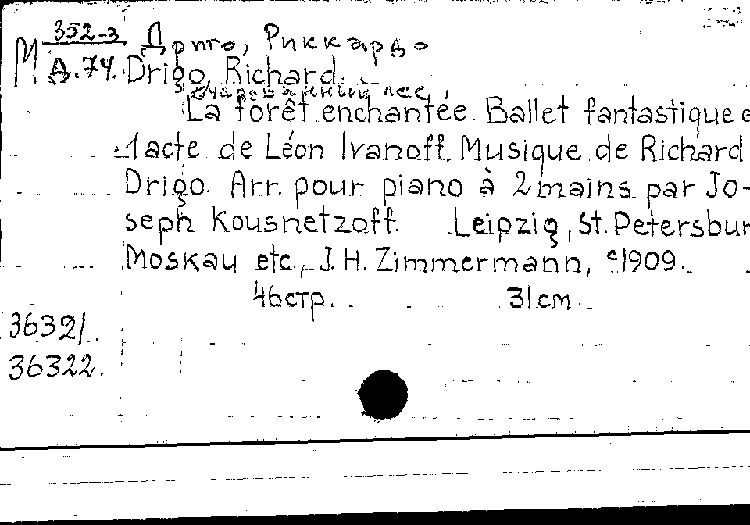 М 352-3 Дриго, Риккардо
Д.74. Drigo, Richard.
Зачарованный лес,
La forêt enchantée. Ballet fantastique e
1 acte de Léon Ivanoff. Musique de Richard
Drigo. Arr. pour piano à 2 mains par Jo-
seph Kousnetzoff. Leipzig, St. Petersbur
Moskau etc, J. H. Zimmermann, c1909.
46 стр. 31 см.
36321.
36322.